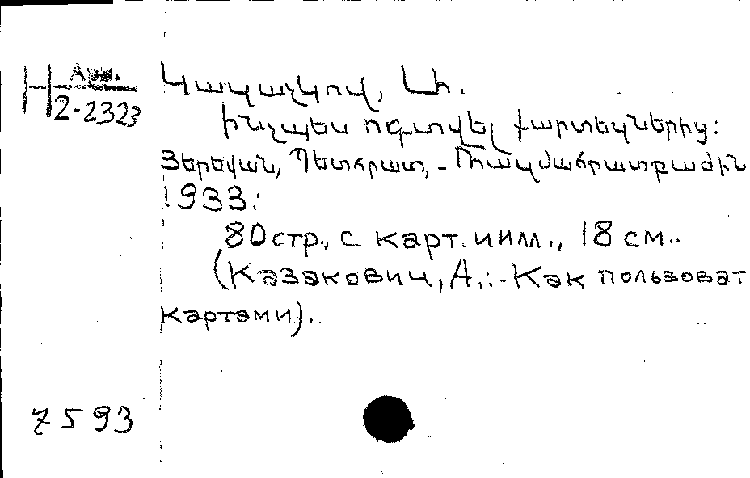 Н Арм.
2-2323
Կազակով, Ա.
Ինչպես ոգտվել քարտեզներից:
Յերեվան, Պետհրատ,-Ռազմհրատբաժին
1933:
80 стр., с карт. и илл., 18 см..
(Казакович, А.:-Как пользоват
картами).
7593